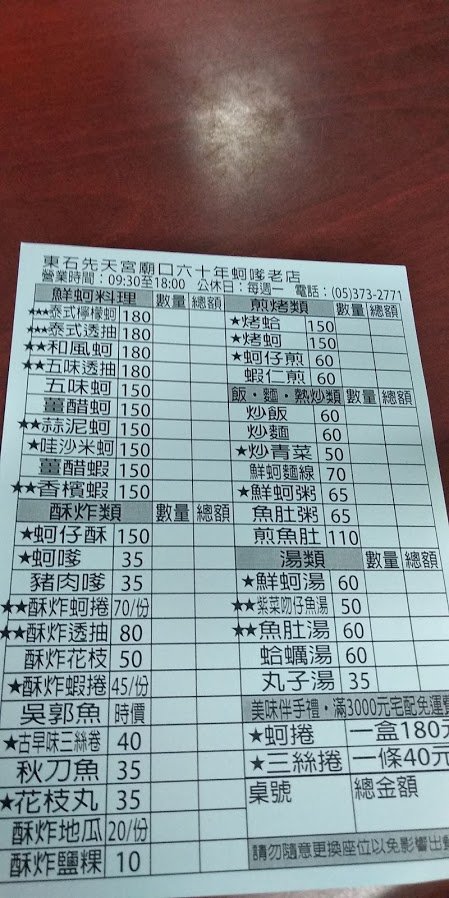 東石先天宮廟口六十年蚵嗲老店
營業時間：09:30至18:00 公休日：每週一 電話：(05)373-2771
鮮蚵料理 數量 總額
★★★泰式檸檬蚵 180
★★★泰式透抽 180
★★和風蚵 180
★★五味透抽 180
五味蚵 150
薑醋蚵 150
★★蒜泥蚵 150
★哇沙米蚵 150
薑醋蝦 150
★★香檳蝦 150
酥炸類 數量 總額
★蚵仔酥 150
★蚵嗲 35
豬肉嗲 35
★★酥炸蚵捲 70/份
★★酥炸透抽 80
酥炸花枝 50
★酥炸蝦捲 45/份
吳郭魚 時價
★古早味三絲卷 40
秋刀魚 35
★花枝丸 35
酥炸地瓜 20/份
酥炸鹽粿 10
煎烤類 數量 總額
★烤蛤 150
★烤蚵 150
★蚵仔煎 60
蝦仁煎 60
飯・麵・熱炒類 數量 總額
炒飯 60
炒麵 60
★炒青菜 50
鮮蚵麵線 70
★鮮蚵粥 65
魚肚粥 65
煎魚肚 110
湯類 數量 總額
★鮮蚵湯 60
★★紫菜吻仔魚湯 50
★★魚肚湯 60
蛤蠣湯 60
丸子湯 35
美味伴手禮・滿3000元宅配免運費
★蚵捲 一盒180元
★三絲捲 一條40元
桌號 總金額
請勿隨意更換座位以免影響出